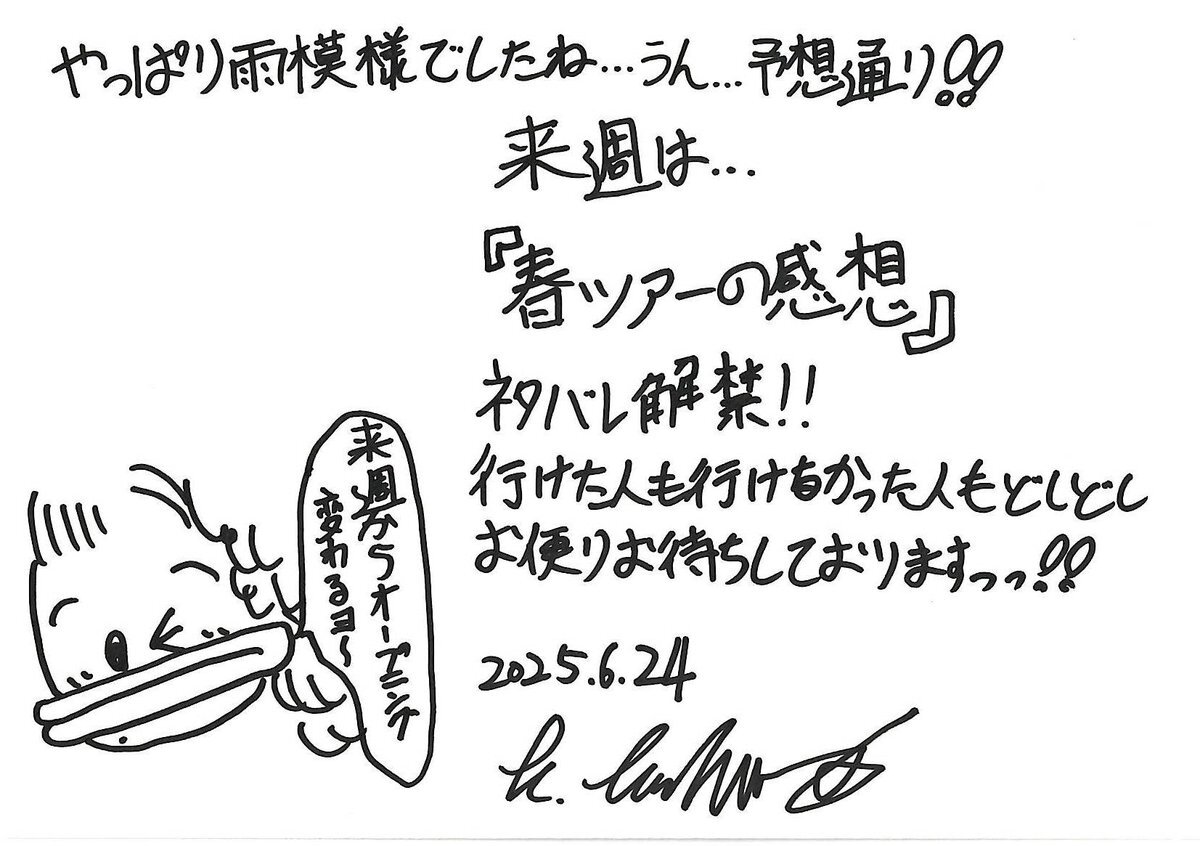 やっぱり雨模様でしたね…うん…予想通り!!
来週は…
『春ツアーの感想』
ネタバレ解禁!!
行けた人も行けなかった人もどしどし
お便りお待ちしておりますっっ!!
来週からオープニング
変わるヨ〜
2025.6.24
K.